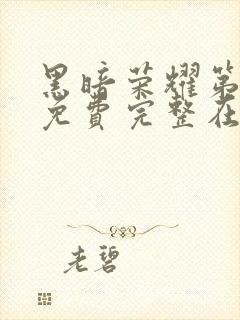 黑暗荣耀第
免费完整在
老碧